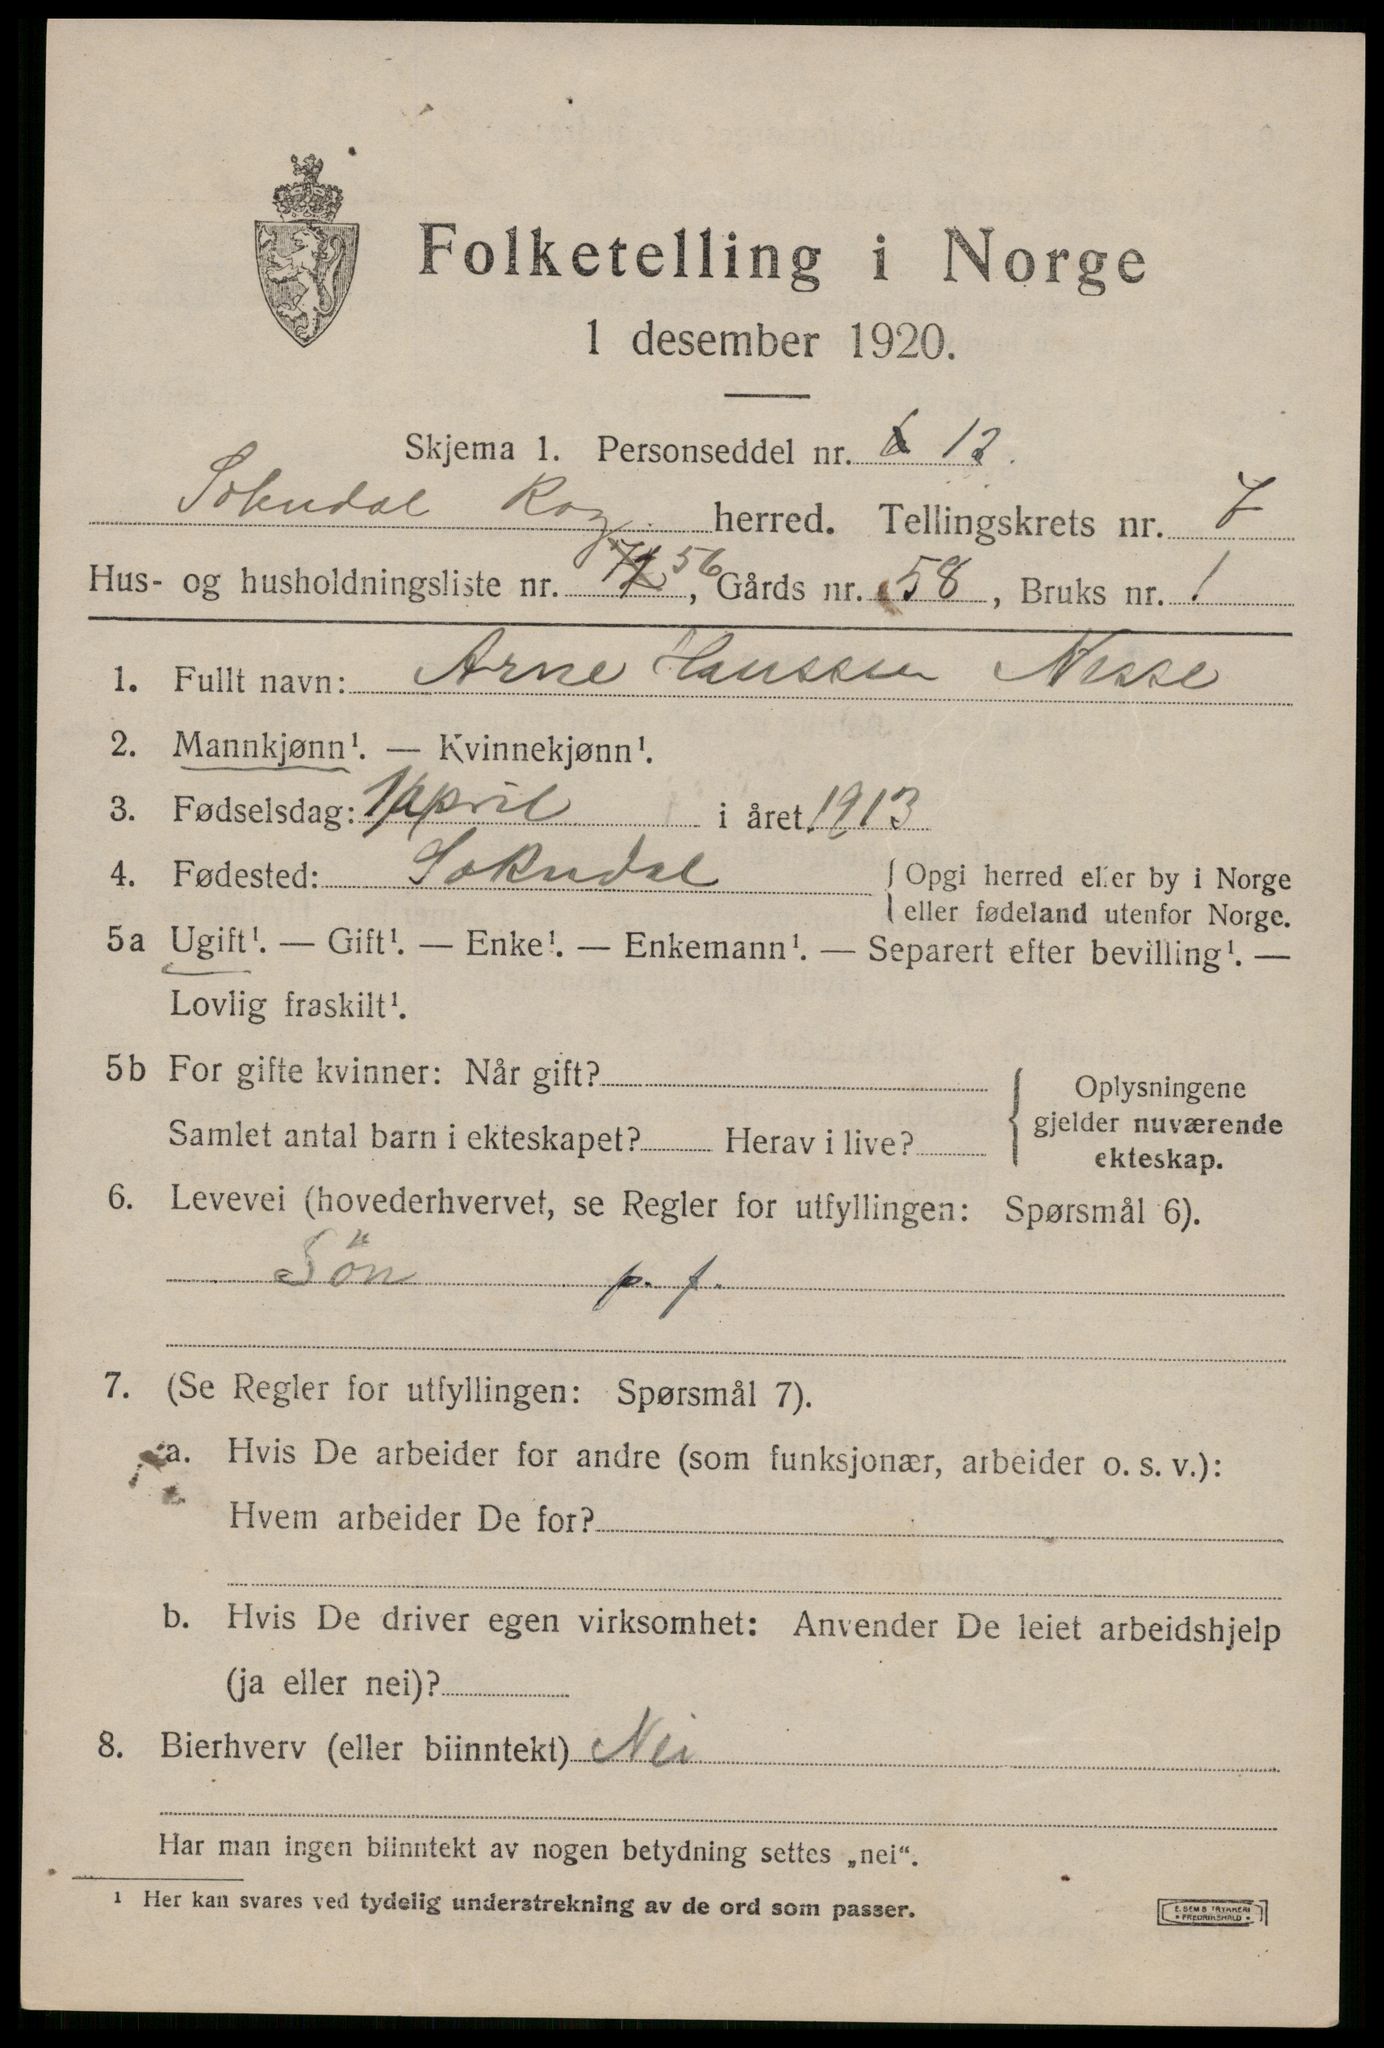 Folketelling i Norge
1 desember 1920.
Skjema 1. Personseddel nr. 6 12.
Sokndal Rog. herred. Tellingskrets nr. 7
Hus- og husholdningsliste nr. 56, Gårds nr. 58, Bruks nr. 1
1. Fullt navn: Arne Hanssen Nesse
2. Mannkjønn¹. — Kvinnekjønn¹.
3. Fødselsdag: 1/April i året 1913
4. Fødested: Sokndal { Opgi herred eller by i Norge
eller fødeland utenfor Norge.
5a Ugift¹. — Gift¹. — Enke¹. — Enkemann¹. — Separert efter bevilling¹. —
Lovlig fraskilt¹.
5b For gifte kvinner: Når gift?
Samlet antal barn i ekteskapet? Herav i live?
{ Oplysningene
gjelder nuværende
ekteskap.
6. Levevei (hovederhvervet, se Regler for utfyllingen: Spørsmål 6).
Sön p. f.
7. (Se Regler for utfyllingen: Spørsmål 7).
a. Hvis De arbeider for andre (som funksjonær, arbeider o. s. v.):
Hvem arbeider De for?
b. Hvis De driver egen virksomhet: Anvender De leiet arbeidshjelp
(ja eller nei)?
8. Bierhverv (eller biinntekt) Nei
Har man ingen biinntekt av nogen betydning settes „nei“.
¹ Her kan svares ved tydelig understrekning av de ord som passer.
E. SEMS TRYKKERI
• FREDRIKSHALD •